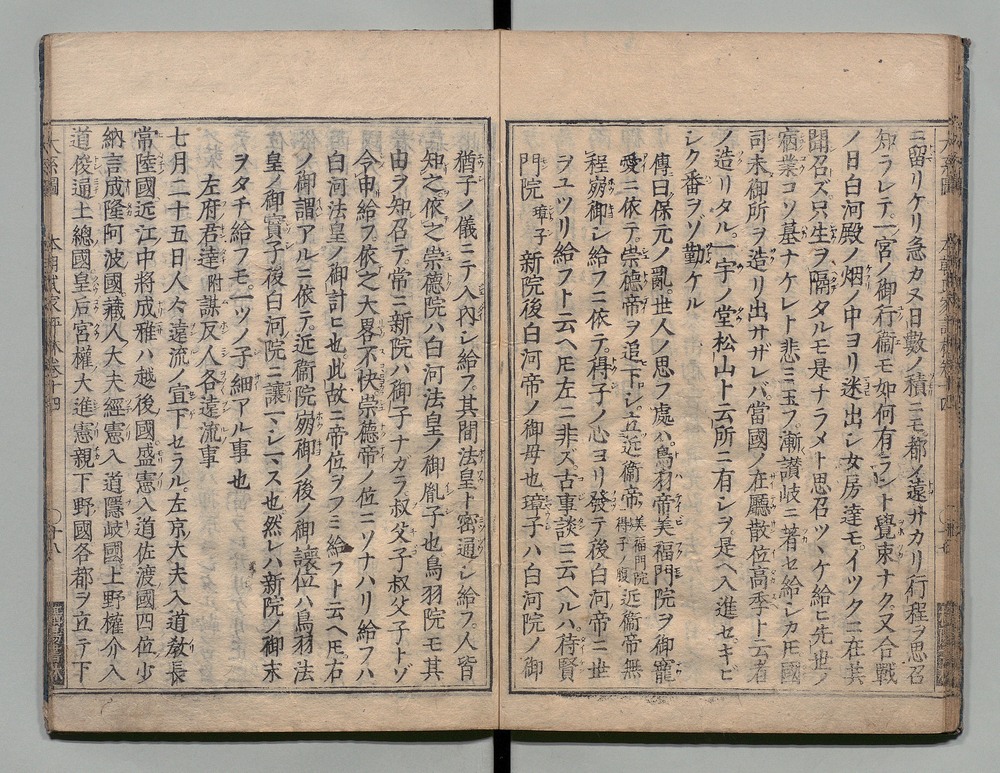 ニ留リケリ急カヌ日數ノ積ニモ都ノ遠サカリ行程ヲ思召
知ラレテ一宮ノ御行衞モ如何有ラント覺束ナク又合戰
ノ日白河殿ノ烟ノ中ヨリ迷出シ女房達モイツクニ在共
聞召ズ只生ヲ隔タルモ是ナラメト思召ツヽケ給ヒ先世ノ
宿業コソ墓ナケレト悲ミ玉フ漸讃岐ニ著セ給シカ𪜈國
司未御所ヲ造リ出サザレバ當國ノ在廳散位高季ト云者
ノ造リタル一宇ノ堂松山ト云所ニ有シヲ是ヘ入進セキビ
シク番ヲソ勤ケル
傳曰保元ノ亂世人ノ思フ處ハ鳥羽帝美福門院ヲ御寵
愛ニ依テ崇德帝ヲ追下シ立近衞帝 美福門院得子ノ腹 近衞帝無
程崩御シ給フニ依テ得子ノ心ヨリ發テ後白河帝ニ世
ヲユツリ給フト云ヘ𪜈左ニ非ズ古事談ニ云ヘルハ待賢
門院 璋子 新院後白河帝ノ御母也璋子ハ白河院ノ御
猶子ノ儀ニテ入內シ給フ其間法皇ト密通シ給フ人皆
知之依之崇德院ハ白河法皇ノ御胤子也鳥羽院モ其
由ヲ知召テ常ニ新院ハ御子ナガラ叔父子叔父子トゾ
令申給フ依之大畧不快崇德帝ノ位ニソナハリ給フハ
白河法皇ノ御計ヒ也此故ニ帝位ヲフミ給フト云ヘ𪜈右
ノ御謂アルニ依テ近衞院崩御ノ後ノ御讓位ハ鳥羽法
皇ノ御實子後白河院ニ讓マシマス也然レハ新院ノ御末
ヲタチ給フモ一ツノ子細アル事也
左府君達 附謀反人各遠流事
七月二十五日人々遠流ノ宣下セラル左京大夫入道敎長
常陸國近江中將成雅ハ越後國盛憲入道佐渡國四位少
納言成隆阿波國藏人大夫經憲入道隱岐國上野權介入
道俊通上總國皇后宮權大進憲親下野國各都ヲ立テ下
本朝武家評林卷十四
十八